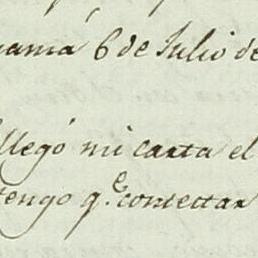 anamá 6 de Julio de
llegó mi carta el
tengo q.e contextar